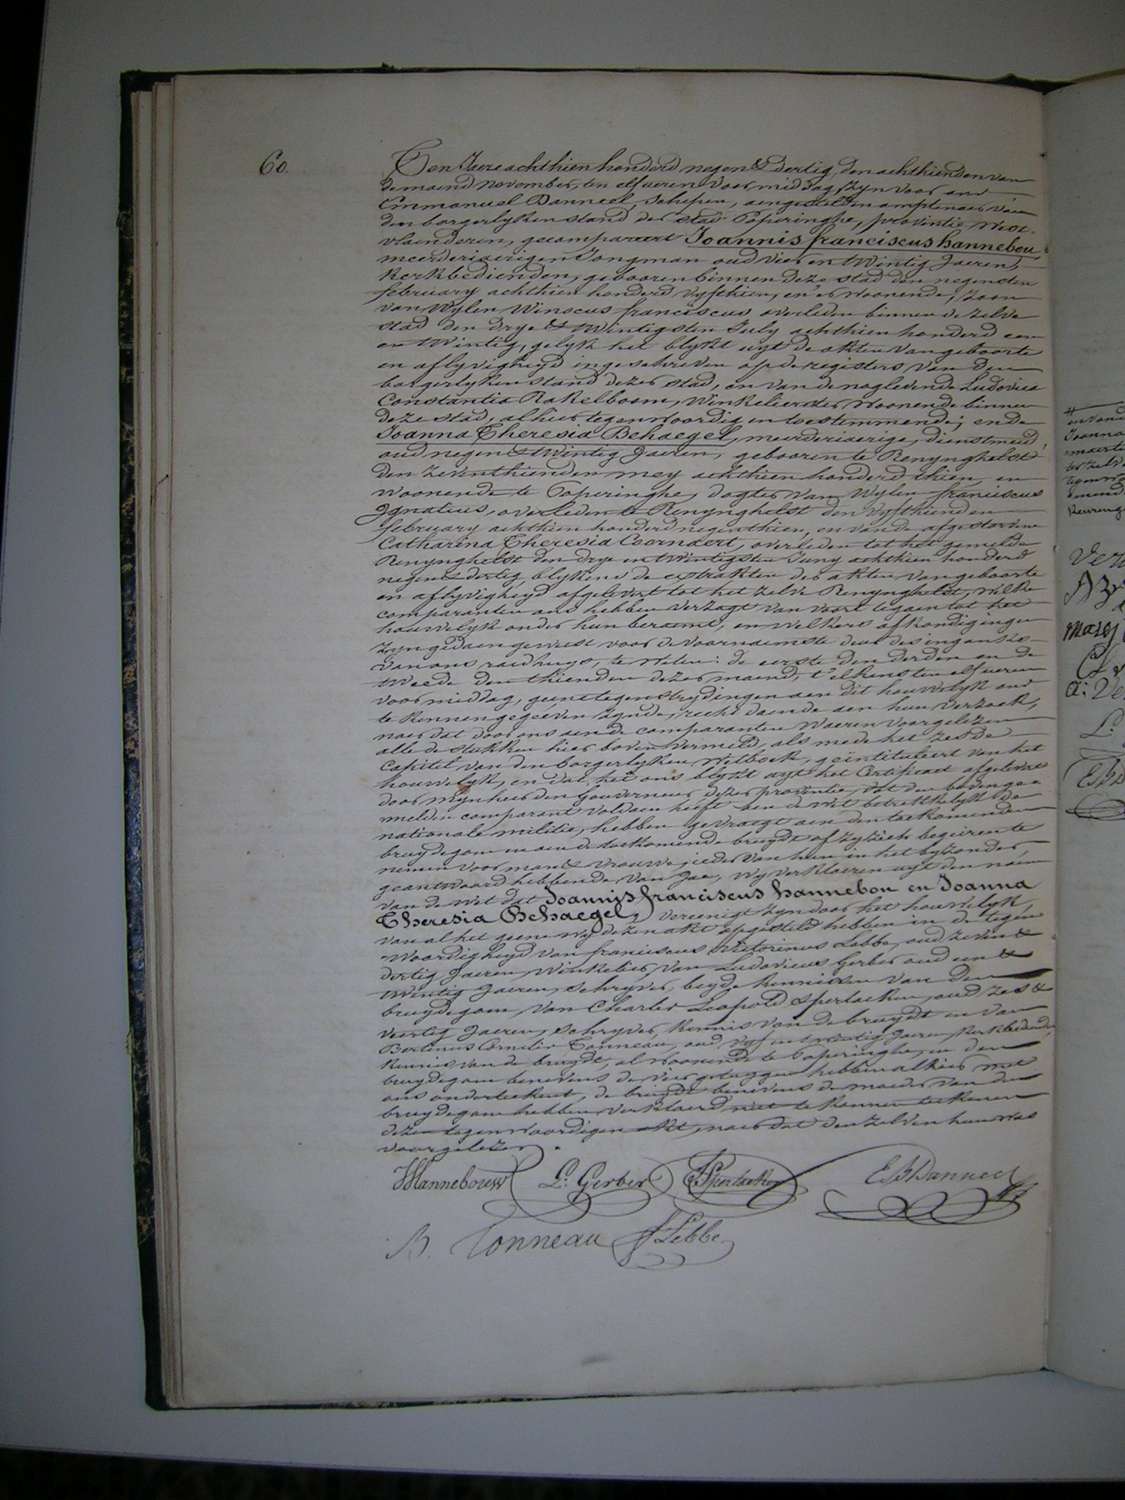 60
Ten Jaere achthien honderd negen & dertig, den achthienden van
de maend november, ten elf ueren voormiddag, zyn voor ons
Emmanuel Banneel, Schepen, aengestelden amptenaer van
den borgerlyken stand der stad Poperinghe, provintie West-
vlaenderen, gecompareert Joannis franciscus hannebou
meerderjaerigen Jongman oud vier en twintig Jaeren,
kerkbedienden, gebooren binnen deze stad den negensten
february achthien honderd vyfthien, en er woonende, zoon
van wylen Winocus franciscus overleden binnen de zelve
stad den drye & twintigsten July achthien honderd een
en twintig, gelyk het blykt uyt de akten van geboorte
en aflyvigheyd ingeschreven op de registers van den
borgerlyken stand dezer stad, en van de naglevende Ludovica
Constantia Rakelboom, Winkelierster woonende binnen
deze stad, alhier tegenwoordig en toestemmende; ende
Joanna Theresia Behaegel, meerderjaerige, dienstmeid,
oud negen & twintig Jaeren, gebooren te Renynghelst
den zeventhienden mey achthien honderd thien, en
woonende te Poperinghe, dogter van Wylen franciscus
Ignatius, overleden te Renynghelst den vyfthienden
february achthien honderd negenthien, en van de afgestorvene
Catharina Theresia Coornaert, overleden tot het gemelde
Renynghelst den drye en twintigsten Juny achthien honderd
negen & dertig, blykens de extrakten der akten van geboorte
en aflyvigheyd afgelevert tot het zelve Renynghelst, welke
comparanten ons hebben verzogt van voort te gaen tot het
houwelyk onder hun beraemt, en welkers afkondigingen
zyn gedaen geweest voor de voornaemste deur des ingangs
van ons raedhuys, te weten: de eerste den derden en de
tweede den thienden dezer maend, t'elkens ten elf ueren
voormiddag, geene tegenstrydingen aen dit houwelyk ons
te kennen gegeeven zynde, recht doende aen hun verzoek,
naer dat door ons aen de comparanten waeren voorgelezen
alle de stukken hier boven vermeld, als mede het zesde
Capitel van den borgerlyken Wetboek, geintituleert van het
houwelyk, en dat het ons blykt uyt het Certificaet afgelevert
door mynheer den Gouverneur dezer provintie, dat den bovenge-
melden comparant voldaen heeft aen de wet betrekkelyk de
nationale militie, hebben gevraegt aen den toekomenden
bruydegom en aen de toekomende bruydt of zy zich begeiren te
nemen voor man & vrouwe, ieder van hun en het byzonder
geantwoord hebbende van Jae, wy verklaeren uyt den naem
van de wet dat Joannis franciscus hannebou en Joanna
Theresia Behaegel, vereenigt zyn door het houwelyk,
van al het geene wy dezen akt opgesteld hebben in de tegen-
woordigheyd van franciscus Victorinus Lebbe, oud zeven &
dertig Jaeren, Winkelier, van Ludovicus Gerber oud een &
twintig Jaeren, Schryver, beyde kennissen van den
bruydegom, van Charles Leopold Spertacken, oud zes &
veertig Jaeren, Schryver, kennis van de bruydt en van
Bertinus Cornelis Tonneau, oud vyf en Jaeren, kerkbediende,
kennis van de bruydt, al woonende te Poperinghe, en den
bruydegom benevens de vier getuygen hebben alhier met
ons onderteekent, de bruydt benevens de moeder van den
bruydegom hebben verklaerd niet te konnen teekenen
dezen tegenwoordigen akt, naer dat den zelven hun was
voorgelezen.
Hannebouw L: Gerber Spertacken E Banneel
B. Tonneau F Lebbe
Joanna